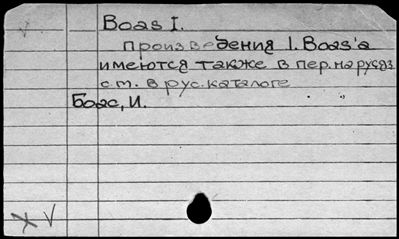 Boas I.
произведения I. Boas'a
имеются также в пер. на русяз
ст. в рус. каталоге
Боас, И.
XV